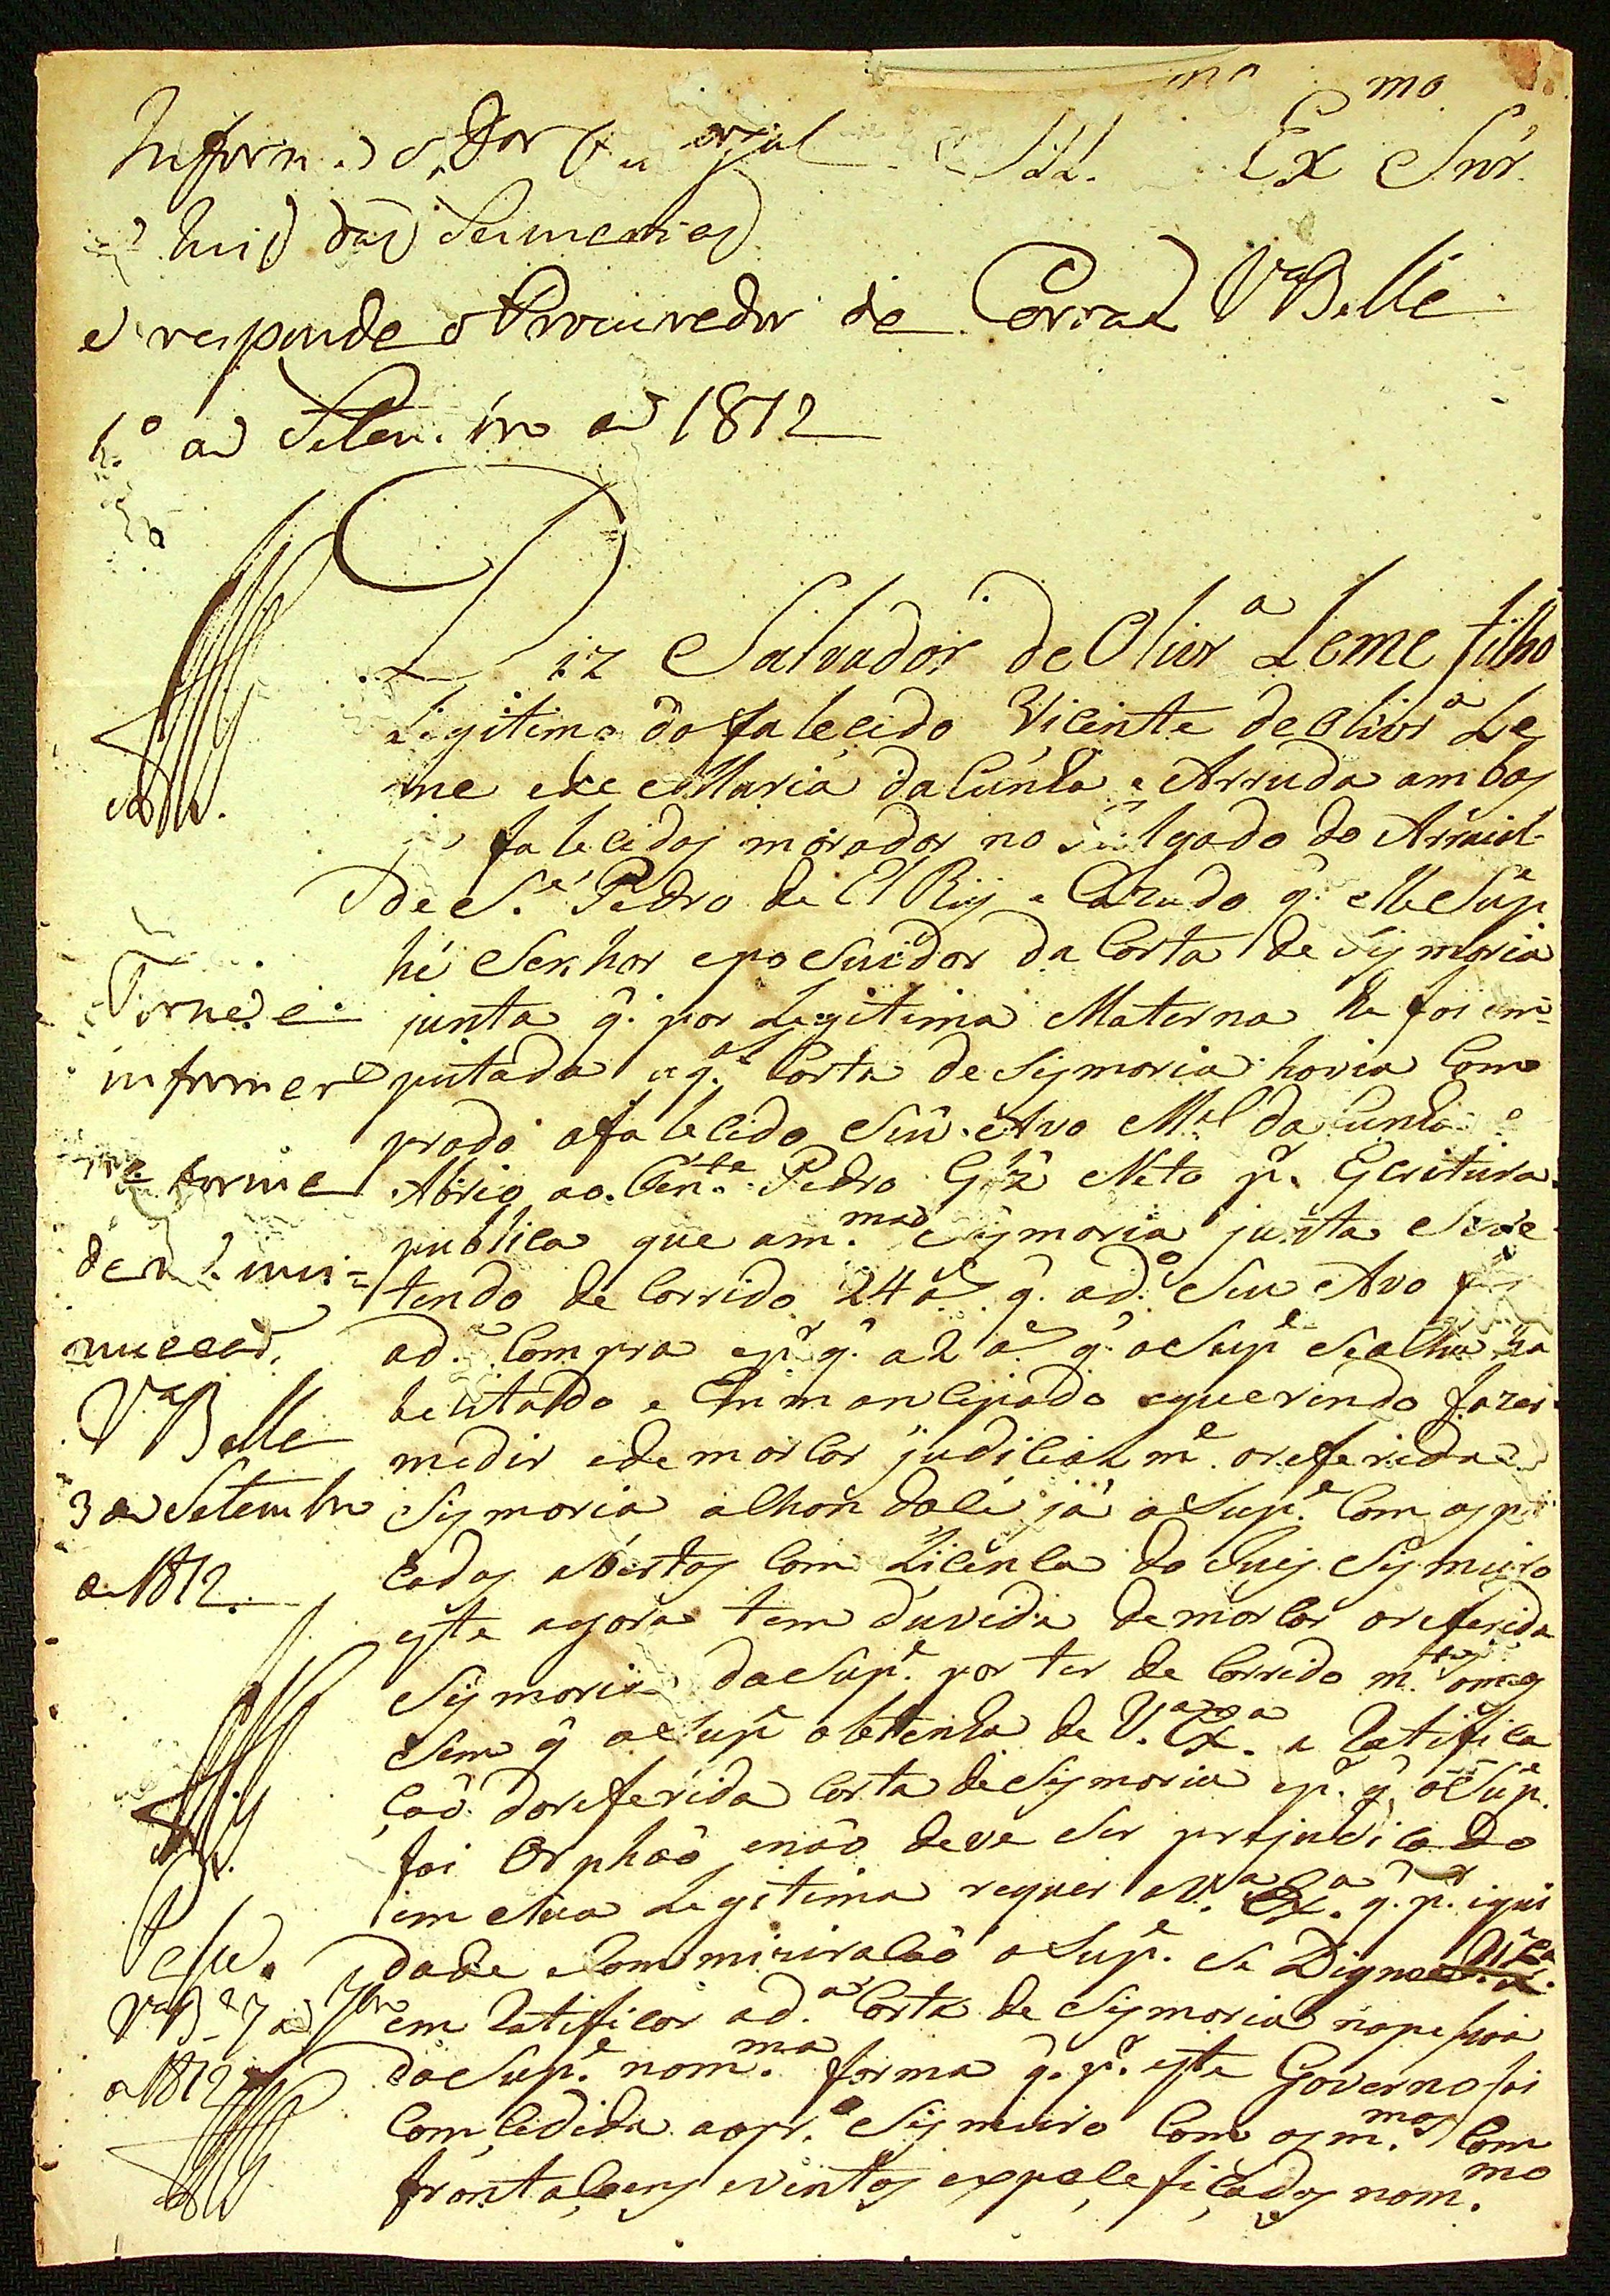 Ill.mo Ex.mo Snr.
Informe o Dor
Juis das Seismarias
e responde o Procurador da Coroa V.a Bella
1.º de Setem.bro de 1812
Diz Salvador de Olivr.a Leme filho
Legitimo do falecido Vicente de Olivr.a Le
me e de Maria da Cunha e Arruda ambos
já falecidos morador no Julgado do Arraial
de S. Pedro de El Rey e Cazado q. elle Sup.e
hé Senhor e posuidor da Carta de Sijmaria
junta q. por Legitima Materna lhe foi im=
putada a q.al Carta de Sijmaria havia Com
prado o falecido Seu Avo M.el da Cunha e
Abrio ao Ten.te Pedro Glz Neto p.r Escritura
publica que a m.ma Sijmaria junta Serve
tendo de Corrido 24 a.s q. o d.o Seu Avo fes
a d.a Compra e p.r q. a 2 a.s q. o Sup.e Se acha ha
belitado e Emmancipado e querendo fazer
medir e demarcar judicialm.e a referida
Sijmaria alhon dali já o Sup.e Com os pi
cados abertos Com Licenca do Juis Sijmeiro
este agora tem duvida demarcar a referida
Sijmaria do Sup.e por ter de Corrido m.tos annos
Sem q. o Sup.e obtenha de V. Ex.a a Ratifica
çaõ da referida Carta de Sijmaria e p.r q. o Sup.e
foi Orphaõ e naõ deve Ser prejudicado
em Sua Legitima requer a V.a Ex.a q. p.r iqui
dade e Commiziracaõ o Sup.e Se Digne V. Ex.a
em Ratificar a d.a Carta de Sijmaria na pessoa
do Sup.e na m.ma forma q. p.r este Governo foi
Comcedida ao pr.o Sijmeiro Com os m.mos Com
frontaçoens e ventos expecificados no m.mo
Torne a
informar
e torne
de n. imi=
nuecad.
V.a Bella
3 de Setembro
de 1812.
Passe.
V.a B.a 7 de 7bro
de 1812